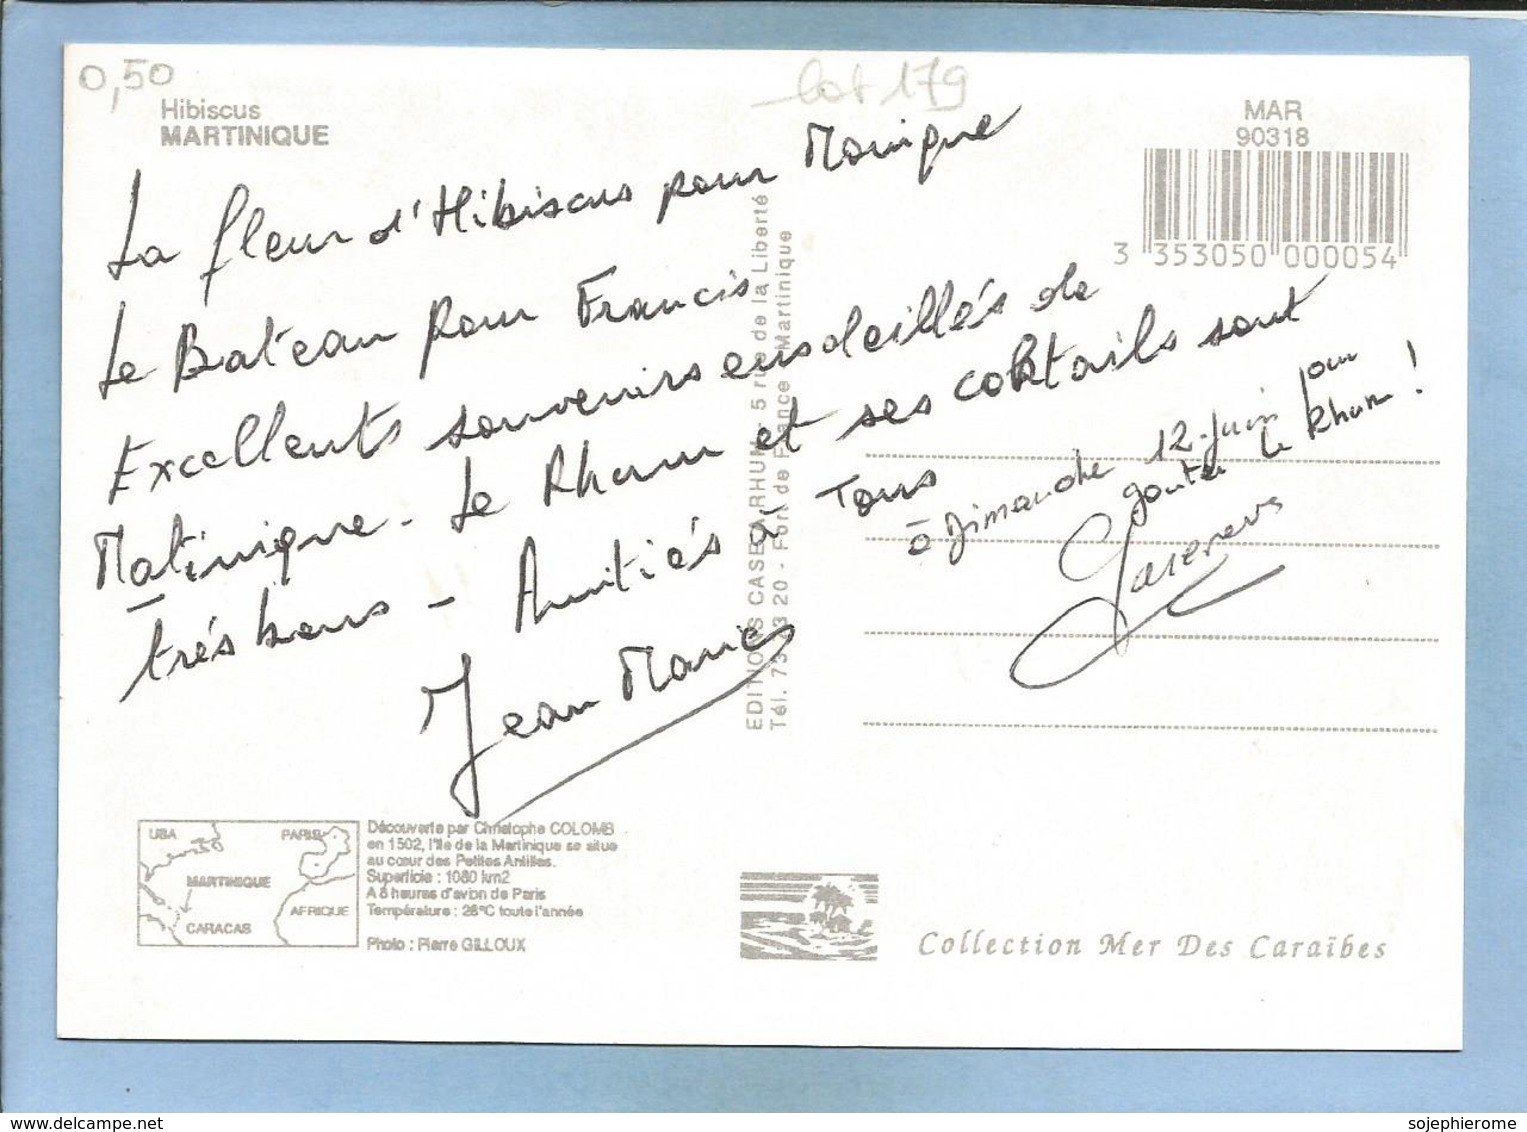 0,50
lot 179
Hibiscus
MARTINIQUE
MAR
90318
3 353050 000054
La fleur d'Hibiscus pour Monique
Le Bateau pour Francis
Excellents souvenirs ensoleillés de
Matinique - Le Rhum et ses cocktails sont
très bons - Amitiés à Tous
Jean Marie
à Dimanche 12 Juin pour
gouter le Rhum !
EDITIONS CASBARHUM - 5 rue de la Liberté
Fort de France Martinique
Découverte par Christophe COLOMB
en 1502, l'île de la Martinique se situe
au cœur des Petites Antilles.
Superficie : 1080 km2
A 8 heures d'avion de Paris
Température : 28°C toute l'année
Photo : Pierre GILLOUX
USA
PARIS
MARTINIQUE
AFRIQUE
CARACAS
Collection Mer Des Caraïbes
www.delcampe.net
sojephierome